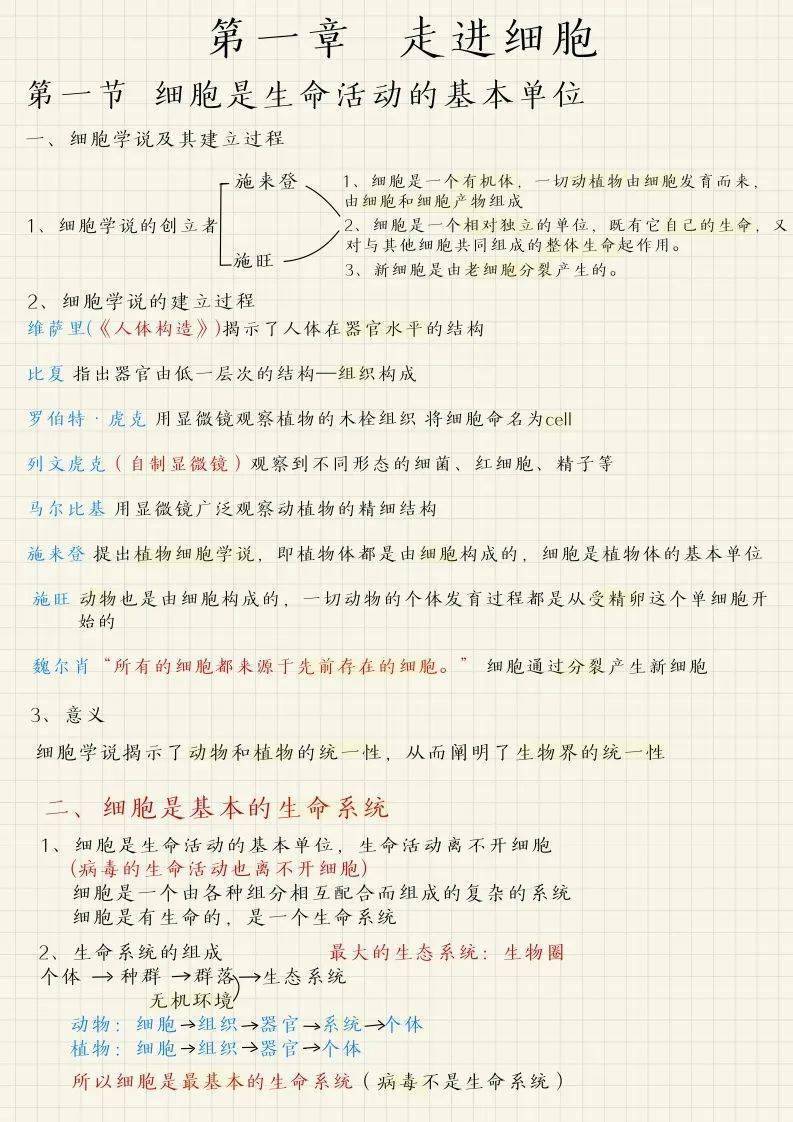 第一章 走进细胞
第一节 细胞是生命活动的基本单位
一、细胞学说及其建立过程
1、细胞学说的创立者
施来登
施旺
1、细胞是一个有机体，一切动植物由细胞发育而来，
由细胞和细胞产物组成
2、细胞是一个相对独立的单位，既有它自己的生命，又
对与其他细胞共同组成的整体生命起作用。
3、新细胞是由老细胞分裂产生的。
2、细胞学说的建立过程
维萨里(《人体构造》)揭示了人体在器官水平的结构
比夏 指出器官由低一层次的结构—组织构成
罗伯特·虎克 用显微镜观察植物的木栓组织 将细胞命名为cell
列文虎克（自制显微镜）观察到不同形态的细菌、红细胞、精子等
马尔比基 用显微镜广泛观察动植物的精细结构
施来登 提出植物细胞学说，即植物体都是由细胞构成的，细胞是植物体的基本单位
施旺 动物也是由细胞构成的，一切动物的个体发育过程都是从受精卵这个单细胞开
始的
魏尔肖“所有的细胞都来源于先前存在的细胞。” 细胞通过分裂产生新细胞
3、意义
细胞学说揭示了动物和植物的统一性，从而阐明了生物界的统一性
二、细胞是基本的生命系统
1、细胞是生命活动的基本单位，生命活动离不开细胞
(病毒的生命活动也离不开细胞)
细胞是一个由各种组分相互配合而组成的复杂的系统
细胞是有生命的，是一个生命系统
2、生命系统的组成 最大的生态系统：生物圈
个体→种群→群落→生态系统
无机环境
动物：细胞→组织→器官→系统→个体
植物：细胞→组织→器官→个体
所以细胞是最基本的生命系统（病毒不是生命系统）